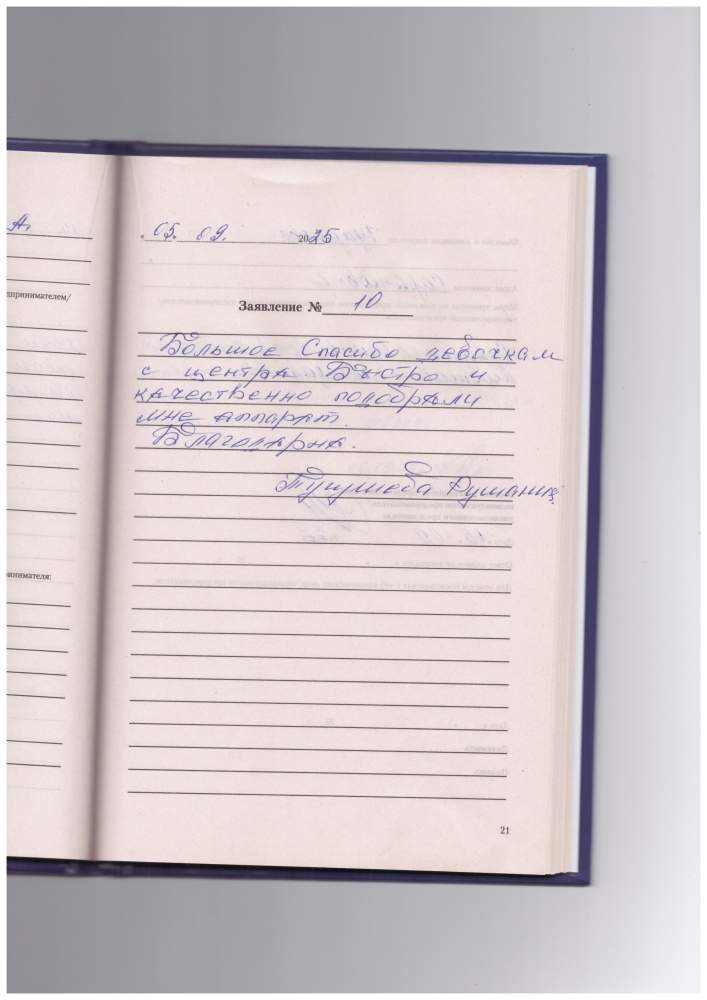 А.
дпринимателем/
ринимателя:
« 05. 09. 2025
Заявление № 10
Большое Спасибо девочкам
с центра Быстро и
качественно подобрали
мне аппарат.
Благодарна.
Тугушева
21